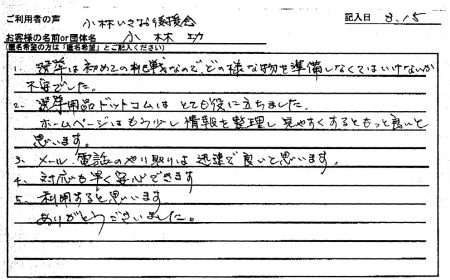 ご利用者の声
小林いさお後援会
記入日 3.15
お客様の名前or団体名 小林 功
(匿名希望の方は「匿名希望」とご記入ください)
1. 選挙は初めての挑戦なので、どの様な物を準備しなくてはいけないか
不安でした。
2. 選挙用品ドットコムはとても役に立ちました。
ホームページはもう少し情報を整理し見やすくするともっと良いと
思います。
3. メール、電話のやり取りは迅速で良いと思います。
4. 対応も早く安心できます
5. 利用すると思います
ありがとうございました。